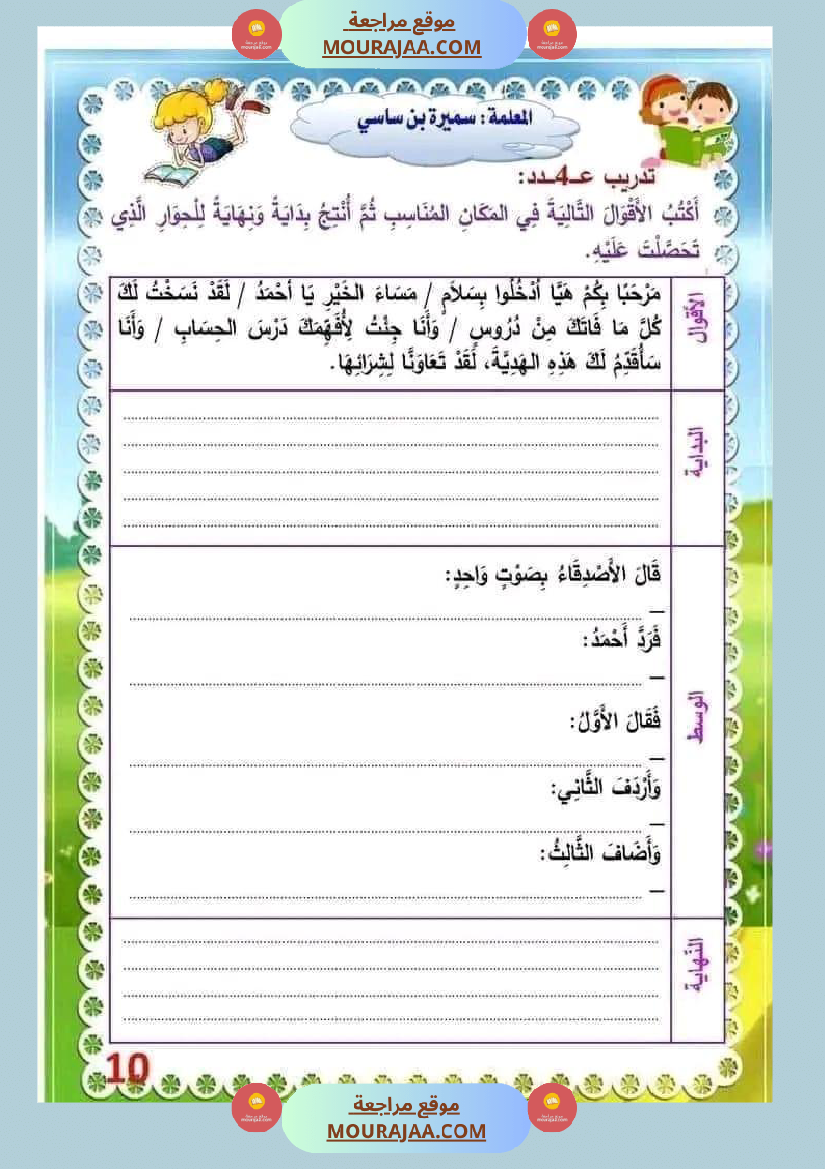 موقع مراجعة
MOURAJAA.COM
المعلمة : سميرة بن ساسي
تدريب عـ4ـدد:
أَكْتُبُ الأَقْوَالَ التَّالِيَةَ فِي المَكَانِ المُنَاسِبِ ثُمَّ أُنْتِجُ بِدَايَةً وَنِهَايَةً لِلْحِوَارِ الَّذِي
تَحَصَّلْتُ عَلَيْهِ.
الأقوال
مَرْحَبًا بِكُمْ هَيَّا اُدْخُلُوا بِسَلاَمٍ / مَسَاءَ الخَيْرِ يَا أَحْمَدُ / لَقَدْ نَسَخْتُ لَكَ
كُلَّ مَا فَاتَكَ مِنْ دُرُوسٍ / وَأَنَا جِئْتُ لِأُفَهِّمَكَ دَرْسَ الحِسَابِ / وَأَنَا
سَأُقَدِّمُ لَكَ هَذِهِ الهَدِيَّةَ، لَقَدْ تَعَاوَنَّا لِشِرَائِهَا.
البداية
الوسط
قَالَ الأَصْدِقَاءُ بِصَوْتٍ وَاحِدٍ:
–
فَرَدَّ أَحْمَدُ:
–
فَقَالَ الأَوَّلُ:
–
وَأَرْدَفَ الثَّانِي:
–
وَأَضَافَ الثَّالِثُ:
–
النهاية
10
موقع مراجعة
MOURAJAA.COM